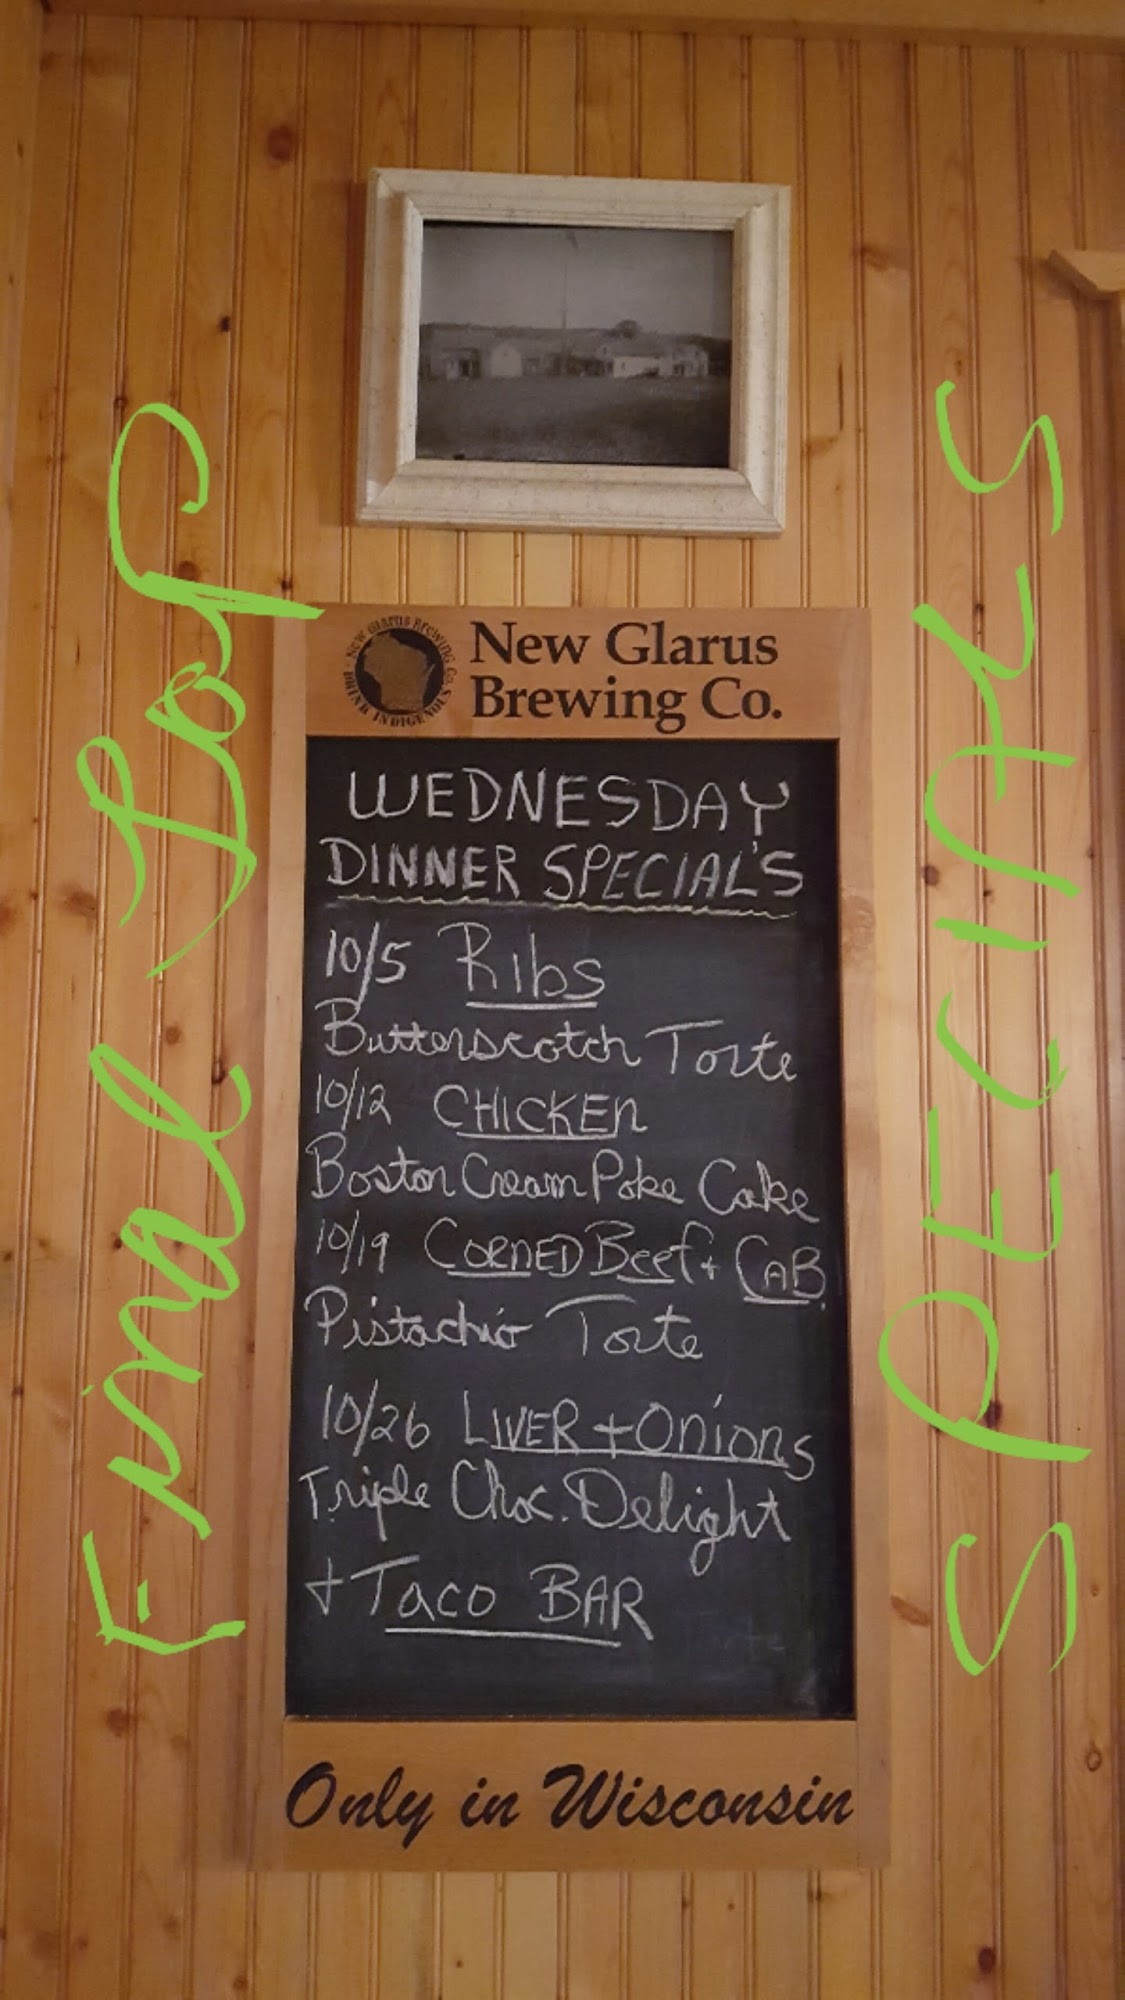 NEW GLARUS BREWING CO.
DRINK INDIGENOUS
New Glarus
Brewing Co.
WEDNESDAY
DINNER SPECIAL'S
10/5 Ribs
Butterscotch Torte
10/12 CHICKEN
Boston Cream Poke Cake
10/19 CORNED Beef + CAB.
Pistachio Torte
10/26 LIVER + Onions
Triple Choc. Delight
+ Taco BAR
Only in Wisconsin
Final
SPECIALS